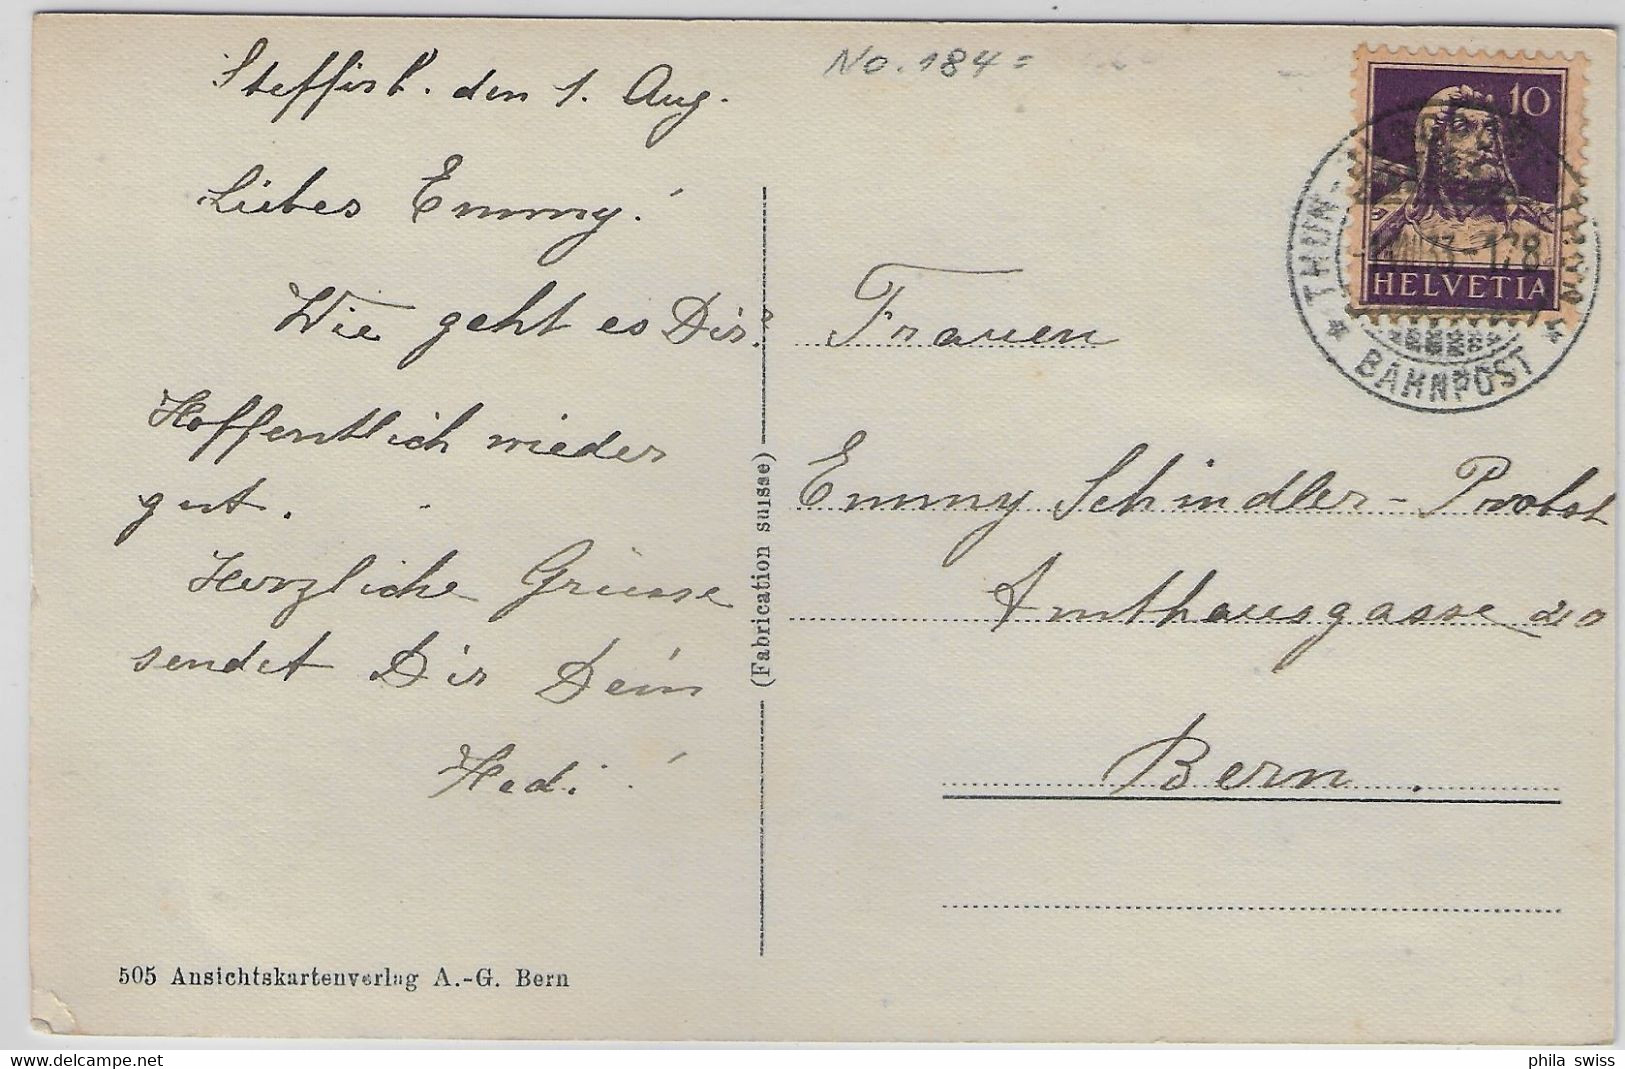 Steffisb. den 1. Aug.
Liebes Emmy!
Wie geht es Dir?
Hoffentlich wieder
gut.
Herzliche Grüsse
sendet Dir Dein
Hedi!
505 Ansichtskartenverlag A.-G. Bern
(Fabrication suisse)
No. 184 =
10
HELVETIA
THUN-
1.VIII.33.-178
* BAHNPOST *
Frauen
Emmy Schindler-Probst
Amthausgasse 20
Bern.
delcampe.net
phila_swiss